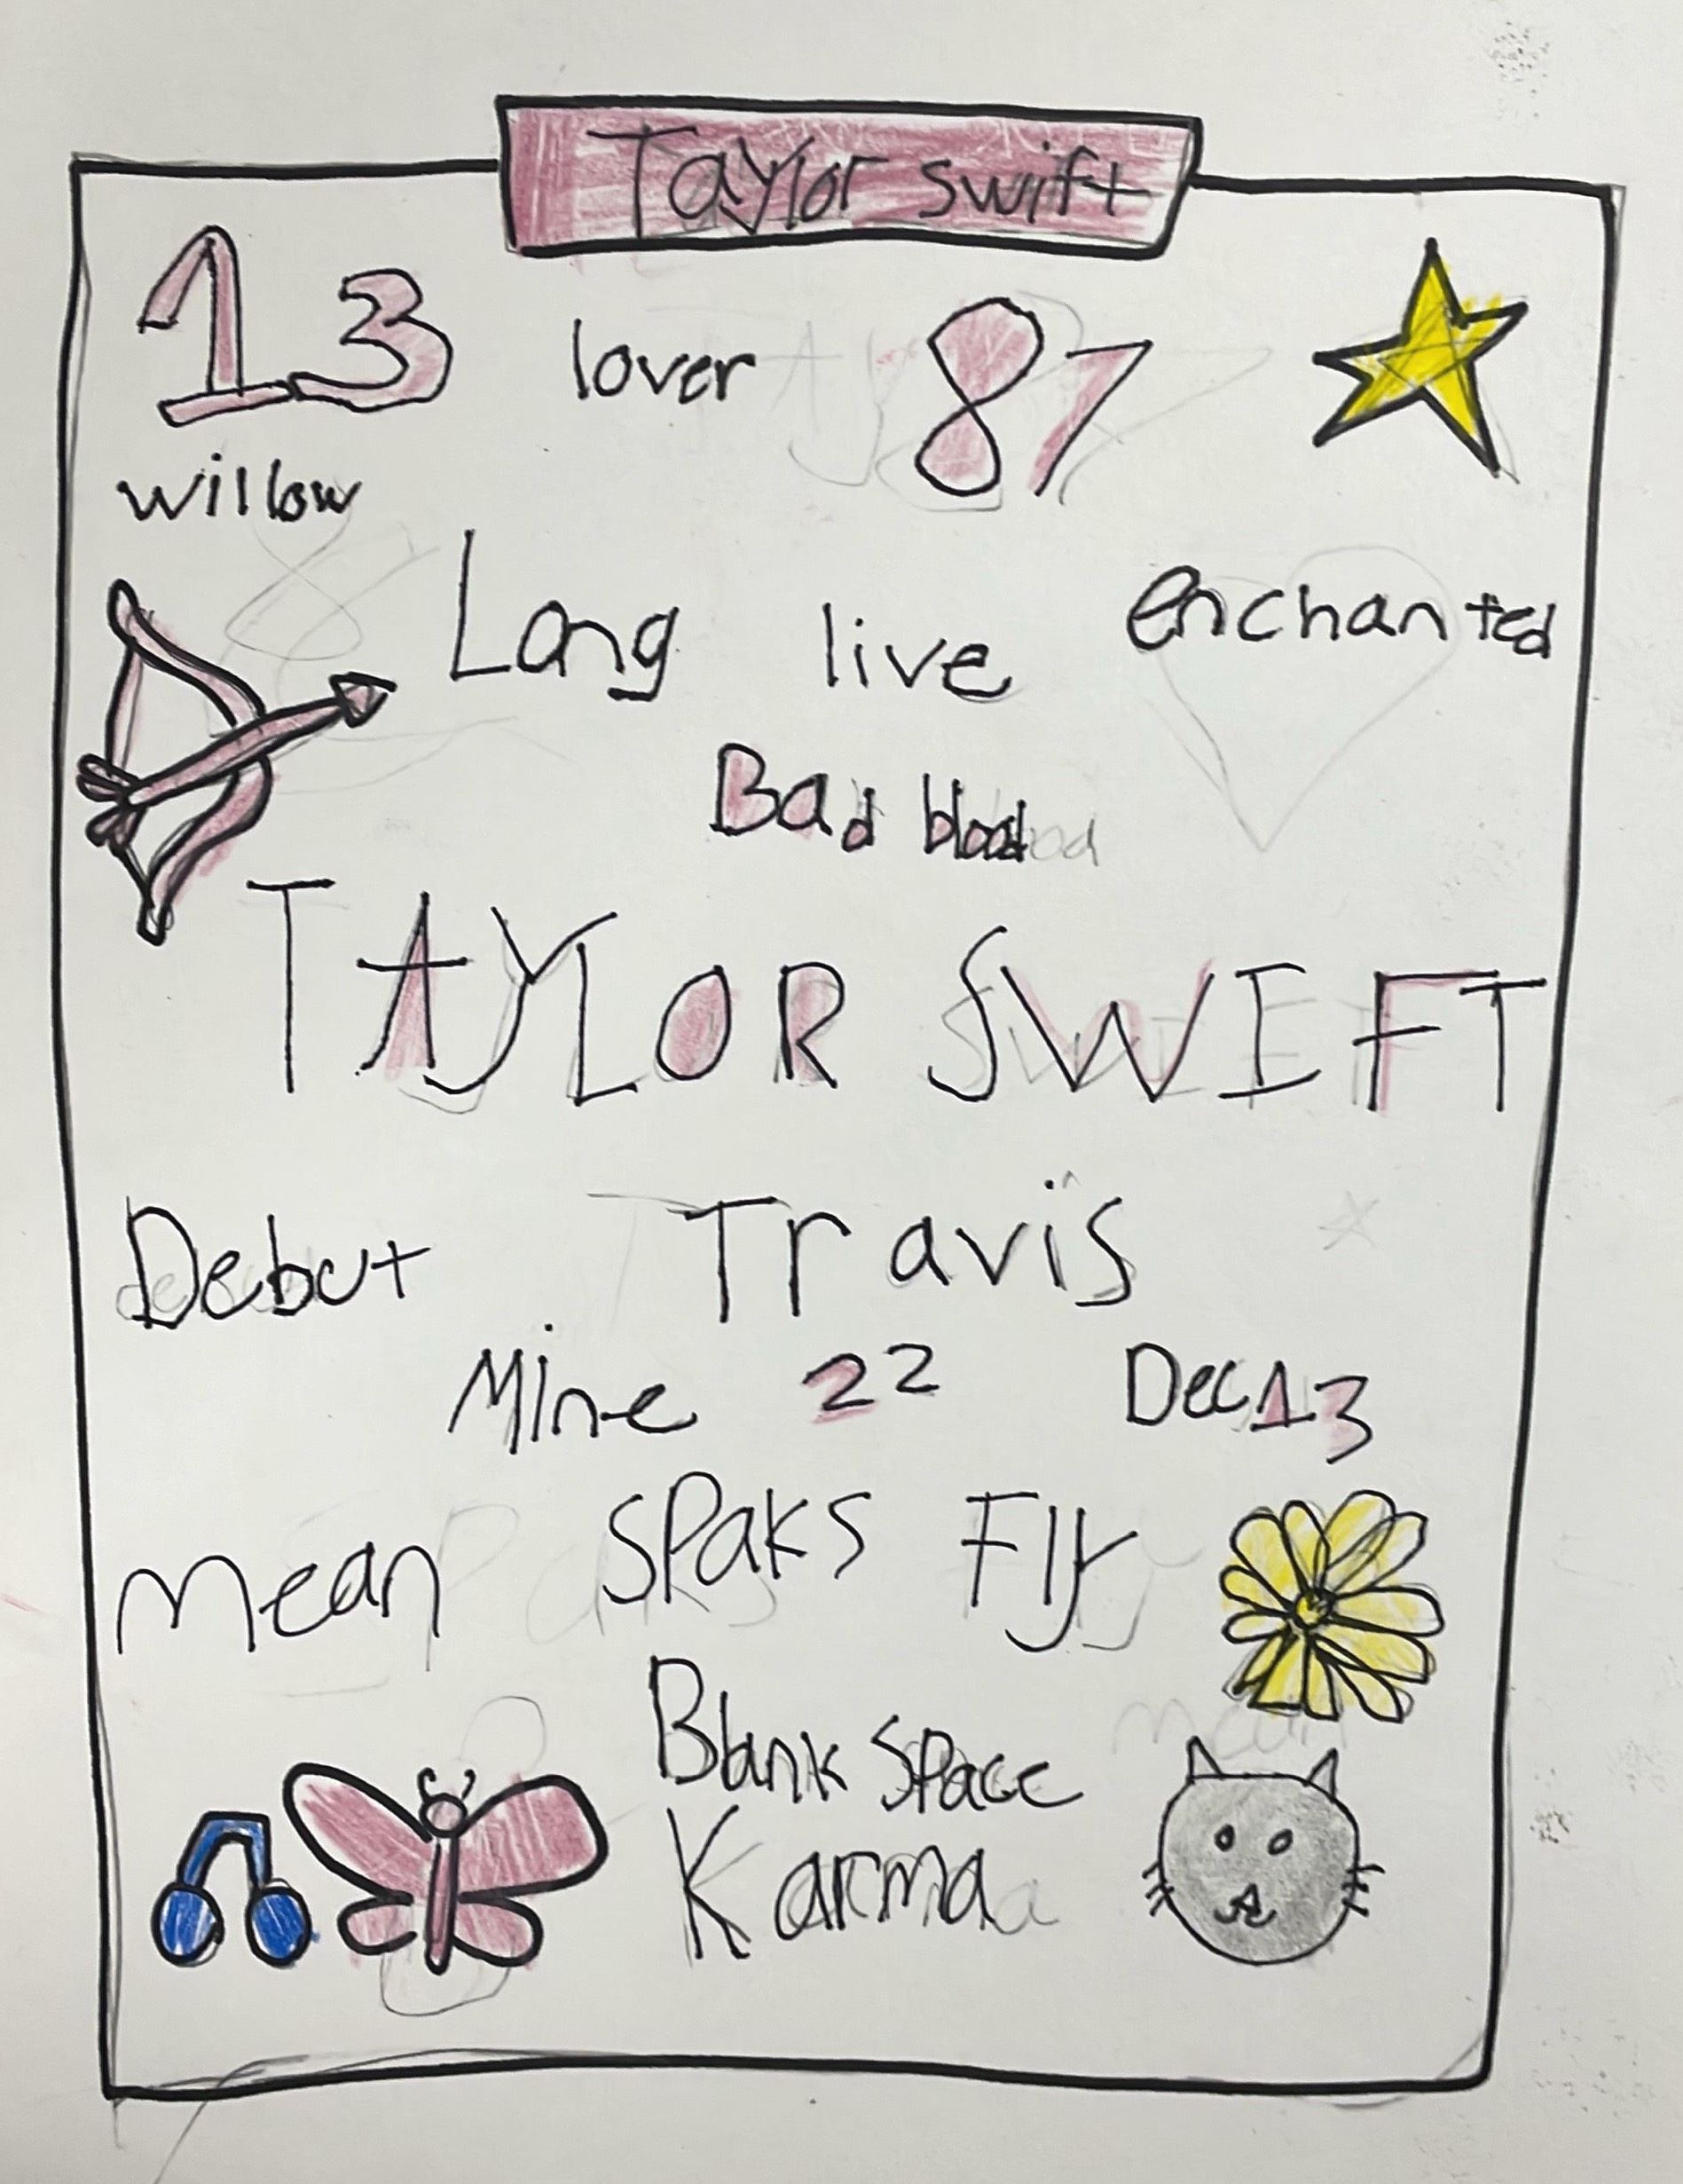 Taylor swift
13 lover 87
willow
Long live enchanted
Bad blood
TAYLOR SWIFT
Debut Travis
Mine 22 Dec 13
mean SPakS Fly
Blank Space
Karma